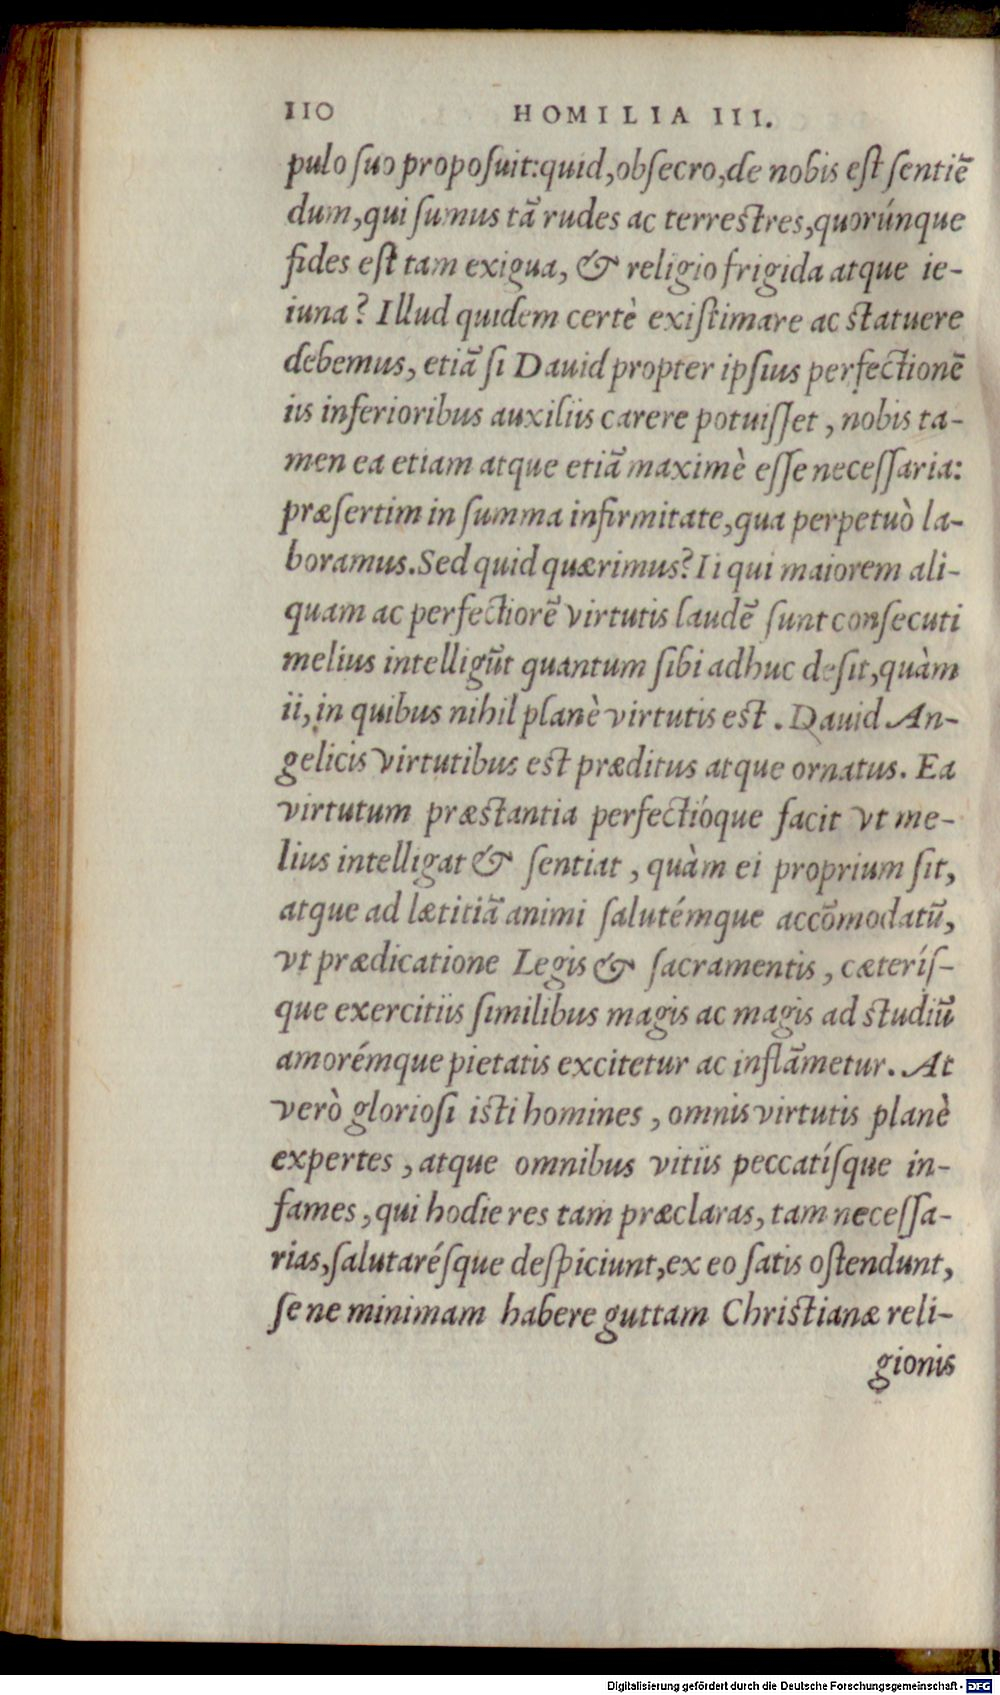 110 HOMILIA III.
pulo ſuo propoſuit: quid, obſecro, de nobis eſt ſentiẽ
dum, qui ſumus tã rudes ac terreſtres, quorúnque
fides eſt tam exigua, & religio frigida atque ie-
iuna? Illud quidem certè exiſtimare ac ſtatuere
debemus, etiã ſi Dauid propter ipſius perfectionẽ
iis inferioribus auxiliis carere potuiſſet, nobis ta-
men ea etiam atque etiã maximè eſſe neceſſaria:
præſertim in ſumma infirmitate, qua perpetuò la-
boramus. Sed quid quærimus? Ii qui maiorem ali-
quam ac perfectiorẽ virtutis laudẽ ſunt conſecuti
melius intelligũt quantum ſibi adhuc deſit, quàm
ii, in quibus nihil planè virtutis eſt. Dauid An-
gelicis virtutibus eſt præditus atque ornatus. Ea
virtutum præſtantia perfectióque facit vt me-
lius intelligat & ſentiat, quàm ei proprium ſit,
atque ad lætitiã animi ſalutémque accõmodatũ,
vt prædicatione Legis & ſacramentis, cæteríſ-
que exercitiis ſimilibus magis ac magis ad ſtudiũ
amorémque pietatis excitetur ac inflãmetur. At
verò glorioſi iſti homines, omnis virtutis planè
expertes, atque omnibus vitiis peccatíſque in-
fames, qui hodie res tam præclaras, tam neceſſa-
rias, ſalutaréſque deſpiciunt, ex eo ſatis oſtendunt,
ſe ne minimam habere guttam Chriſtianæ reli-
gionis
Digitalisierung gefördert durch die Deutsche Forschungsgemeinschaft - DFG